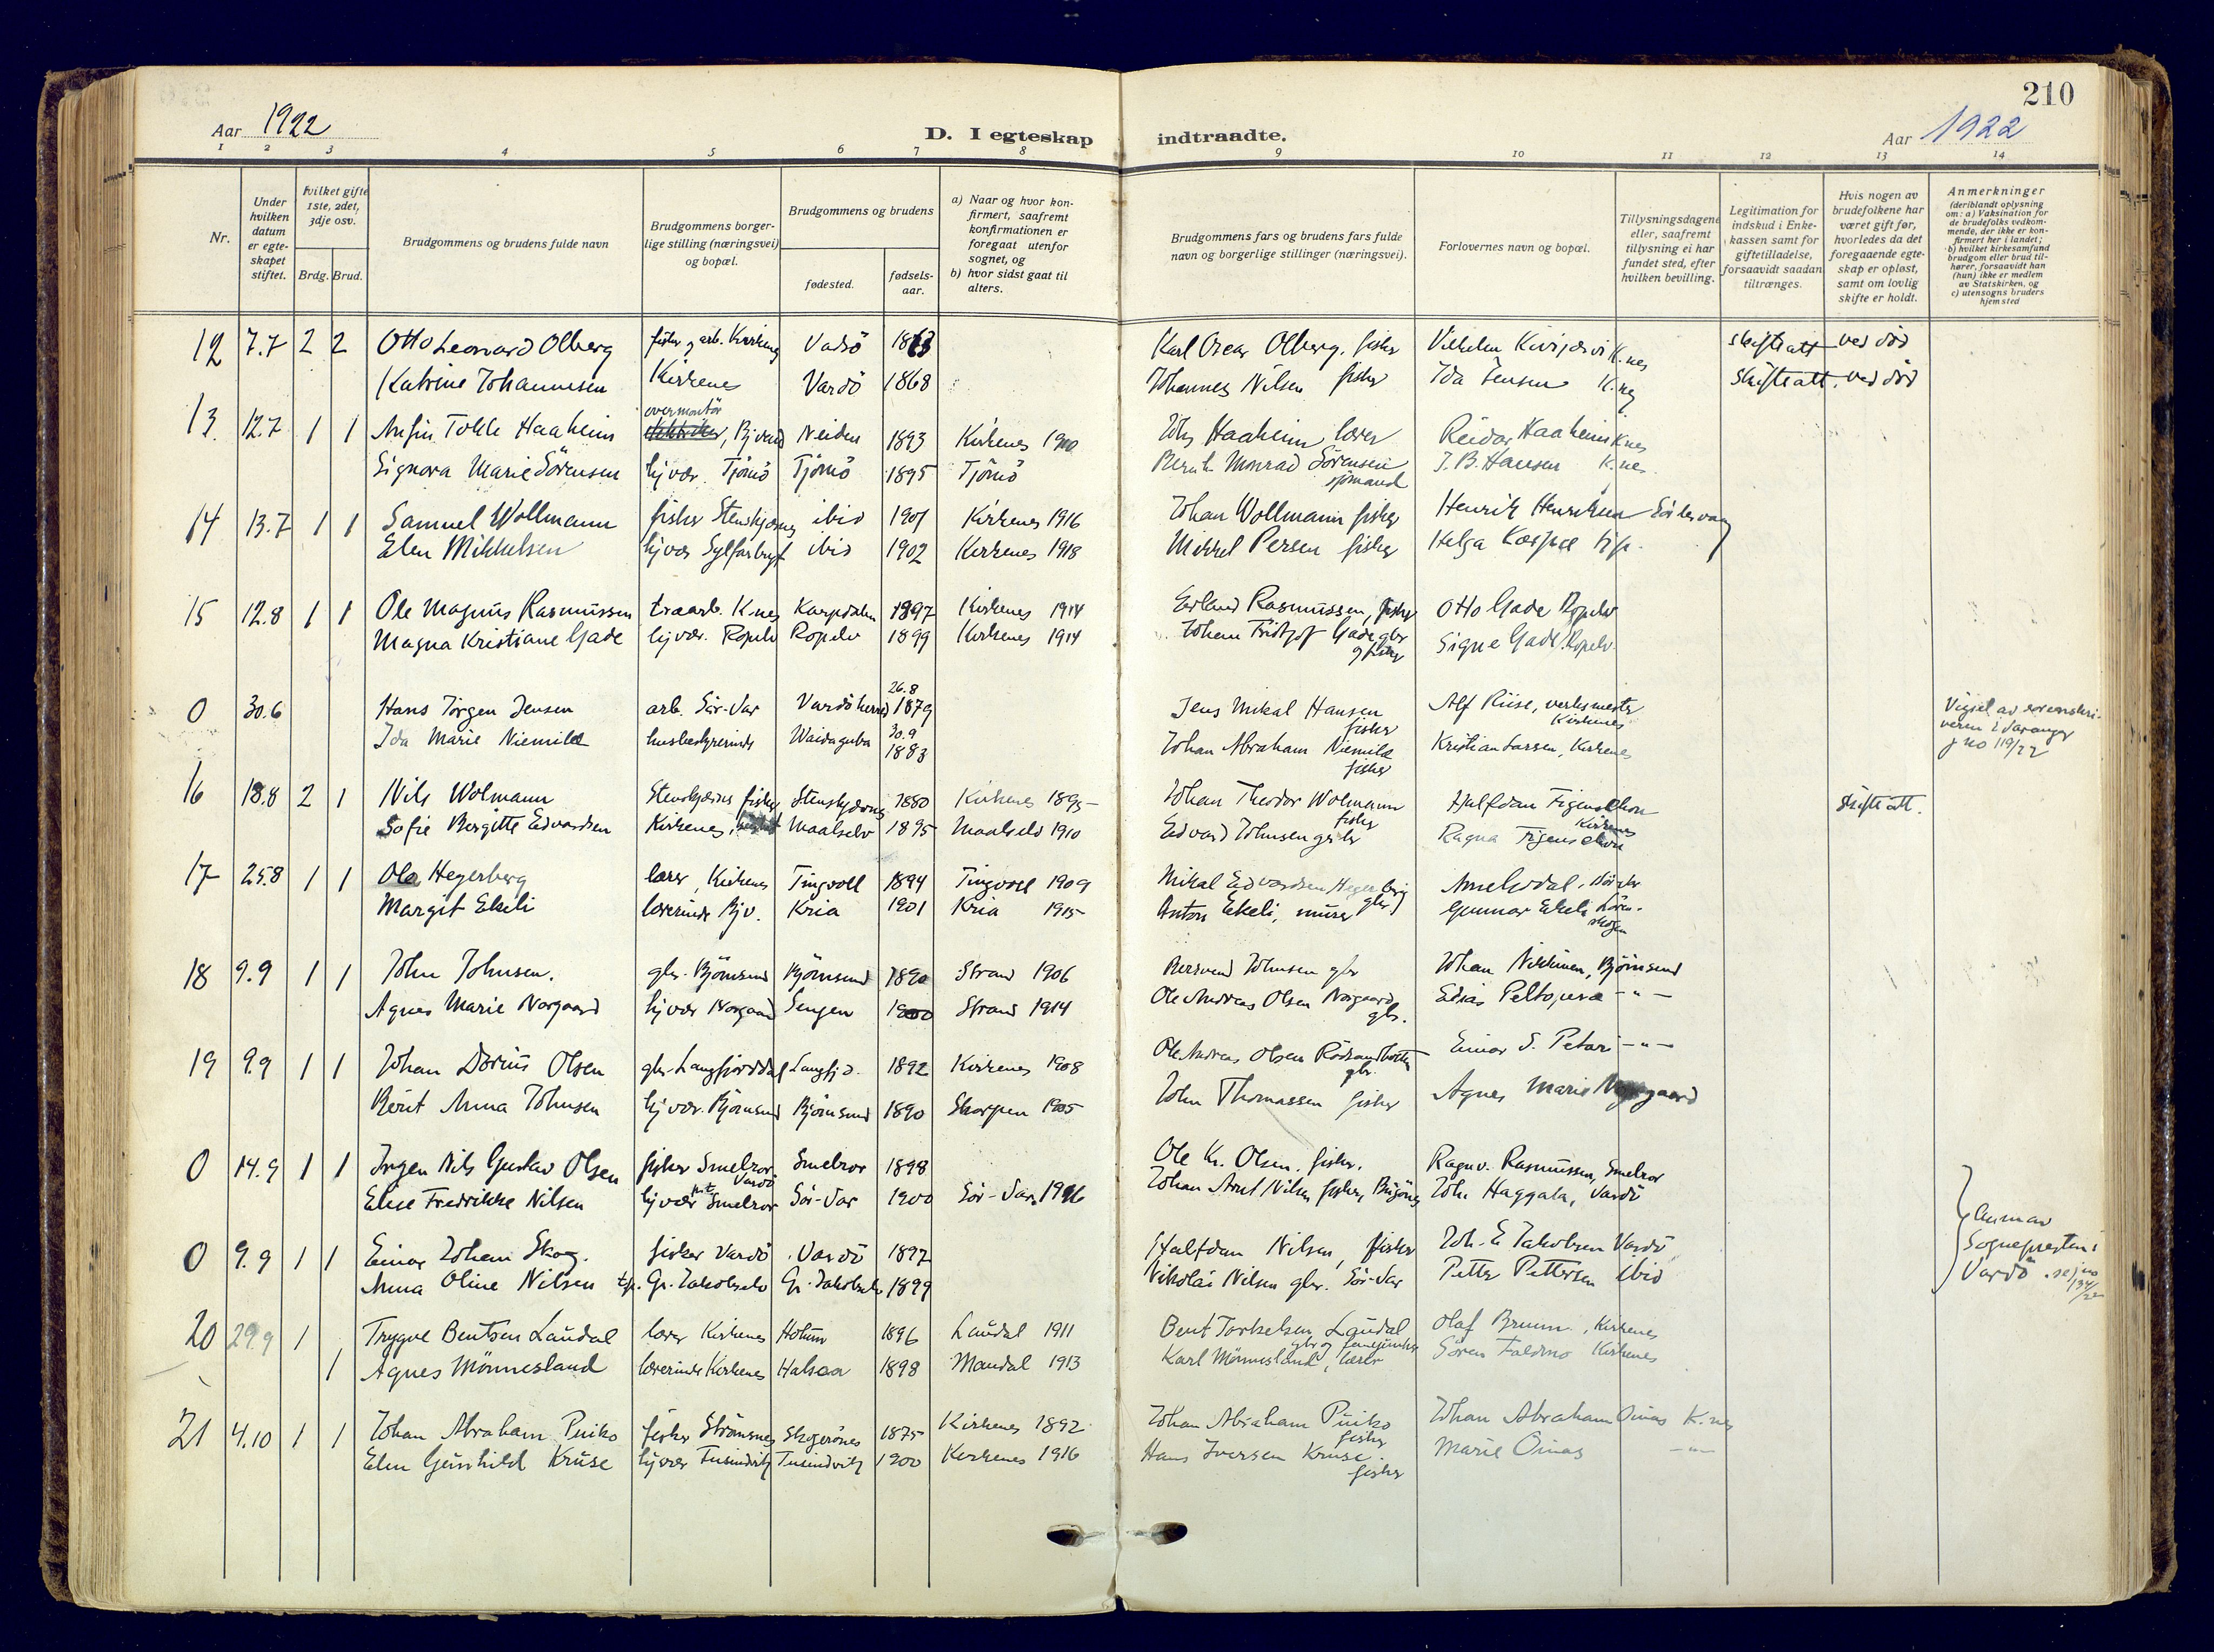 210
Aar 1922
D. I egteskap indtraadte.
Aar 1922
1 2 3 4 5 6 7 8 9 10 11 12 13 14
Nr.
Under hvilken datum er egteskapet stiftet.
Hvilket gifte 1ste, 2det, 3dje osv.
Brdg. Brud.
Brudgommens og brudens fulde navn
Brudgommens borgerlige stilling (næringsvei) og bopæl.
Brudgommens og brudens
fødested.
fødselsaar.
a) Naar og hvor konfirmert, saafremt konfirmationen er foregaat utenfor sognet, og
b) hvor sidst gaat til alters.
Brudgommens fars og brudens fars fulde navn og borgerlige stillinger (næringsvei).
Forlovernes navn og bopæl.
Tillysningsdagene eller, saafremt tillysning ei har fundet sted, efter hvilken bevilling.
Legitimation for indskud i Enkekassen samt for giftetilladelse, forsaavidt saadan tiltrænges.
Hvis nogen av brudefolkene har været gift før, hvorledes da det foregaaende egteskap er opløst, samt om lovlig skifte er holdt.
Anmerkninger
(deriblandt oplysning om: a) Vaksination for de brudefolks vedkommende, der ikke er konfirmert her i landet;
b) hvilket kirkesamfund brudgom eller brud tilhører, forsaavidt han (hun) ikke er medlem av Statskirken, og
c) utensogns bruders hjemsted
12 7.7 2 2 Otto Leonard Olberg fisker og arb. Vadsö 1863 Karl Oscar Olberg, fisker Vilhelm K.nes skifteatt ved död
Katrine Johannesen Kirkenes Vardö 1868 Johannes Nilsen fisker Ida Jensen K.nes skifteatt. ved död
13. 12.7 1 1 Anfin Tokle Haaheim overmontör, Bjvand Neiden 1893 Kirkenes 1910 Johs Haaheim lærer Reidar Haaheim K.nes
Signora Marie Sörensen hj vær. Tjömö Tjömö 1895 Tjömö Bernh. Monrad Sörensen sjömand J. B. Hansen K.nes.
14 13.7 1 1 Samuel Wollmann fisker Stenskjærnes ibid 1901 Kirkenes 1916 Johan Wollmann fisker Henrik Henriksen
Elen Mikkelsen hj vær ibid 1902 Kirkenes 1918 Mikkel Persen fisker Helga
15 12.8 1 1 Ole Magnus Rasmussen K.nes Karpdalen 1897 Kirkenes 1914 Erland Rasmussen, fisker Otto Gade Ropelv
Magna Kristiane Gade hj vær. Ropelv Ropelv 1899 Kirkenes 1914 Johan Fridtjof Gade gbr og fisker Signe Gade Ropelv.
0 30.6 Hans Jörgen Jensen arb. Sör-Var Vardö herred 26.8 1879 Jens Mikal Hansen fisker Alf Riise, verksmester Kirkenes Vigsel av sorenskriveren i Varanger j no 119/22
Ida Marie Niemilæ husbestyrerinde Waidaguba 30.9 1883 Johan Abraham Niemilæ fisker Kristian Larsen, Kirkenes
16 18.8 2 1 Nils Wolmann Stenskjærnes fisker Stenskjærnes 1880 Kirkenes 1895 Johan Theodor Wolmann fisker Halfdan Figenschou Kirkenes skifteatt.
Sofie Bergitte Edvardsen Kirkenes, Maalselv 1895 Maalselv 1910 Edvard Johnsen Ragna Figenschou
17 25.8 1 1 Ola Hegerberg lærer, Kirkenes Tingvoll 1894 Tingvoll 1909 Mikal Edvardsen Hegerberg gbr
Margit Ekeli lærerinde Bjv. Kria 1901 Kria 1915 Anton Ekeli, murer Gunnar Ekeli
18 9.9 1 1 John Johnsen. gbr. Björnsund Björnsund 1890 Strand 1906 Johnsen gbr Johan Nikkinen, Björnsund
Agnes Marie Norgaard hj vær Norgaard Lengen 1900 Strand 1914 Ole Andreas Olsen Norgaard gbr. Edias Peltoperæ - " -
19 9.9 1 1 Johan Darius Olsen gbr. Langfjorddal Langfj d. 1892 Kirkenes 1908 Ole Andreas Olsen gbr. Einar S. Petari - " -
Berit Anna Johnsen hj vær. Björnsund Björnsund 1890 Skogen 1905 John Thomassen fisker Agnes Marie Norgaard
0 14.9 1 1 Jörgen Nils Gustav Olsen fisker Smelror Vardö Smelror 1898 Ole Kr. Olsen. fisker. Ragnv. Rasmussen, Smelror
Elise Fredrikke Nilsen hj vær Smelror Sör-Var 1900 Sör-Var. 1916 Johan Arnt Nilsen fisker, Bugönes Joh. Haggala, Vardö
0 9.9 1 1 Einar Johan Skog. fisker Vardö Vardö 1897 Halfdan Nilsen, fisker Joh. E Jakobsen Vardö
Anna Oline Nilsen tjp. Gr. Jakobselv Gr. Jakobselv 1899 Nikolai Nilsen gbr. Sör-Var Petter Pettersen ibid
Anm av Sognepresten i Vardö
20 29.9 1 Trygve Bentsen Laudal lærer Kirkenes Holum 1896 Laudal 1911 Bent Torkelsen Laudal gbr og Olaf Bruun, Kirkenes
1 Agnes Mönnesland lærerinde Kirkenes Halsaa 1898 Mandal 1913 Karl Mönnesland, lærer Sören Foldmo Kirkenes
21 4.10 1 1 Johan Abraham Puiko fisker Strömsnes Skogerönes 1875 Kirkenes 1892 Johan Abraham Puiko fisker Johan Abraham Oinas K.nes
Elen Gunhild Kruse hj vær Tusindvik Tusindvik 1900 Kirkenes 1916 Hans Iversen Kruse. fisker Marie Oinas - " -